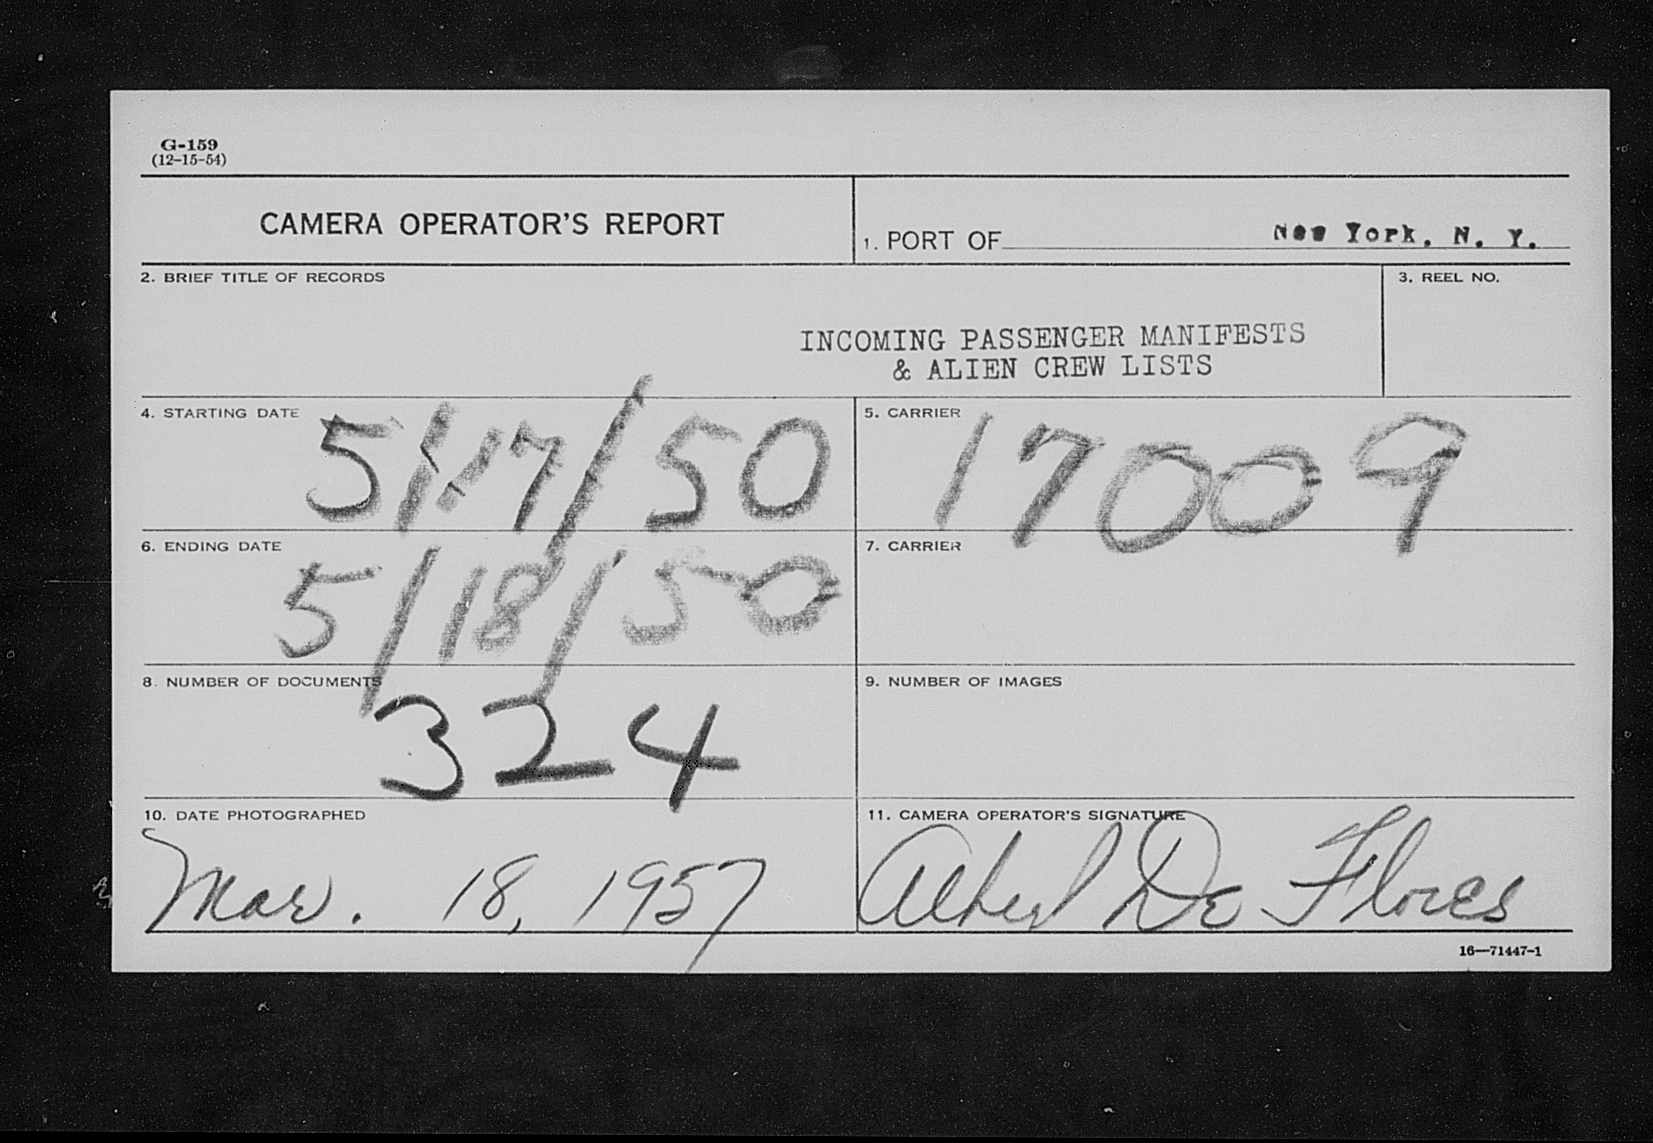 G-159
(12-15-54)
CAMERA OPERATOR'S REPORT
1. PORT OF New York, N. Y.
2. BRIEF TITLE OF RECORDS
3. REEL NO.
INCOMING PASSENGER MANIFESTS
& ALIEN CREW LISTS
4. STARTING DATE 5/17/50
5. CARRIER 17009
6. ENDING DATE 5/18/50
7. CARRIER
8. NUMBER OF DOCUMENTS 324
9. NUMBER OF IMAGES
10. DATE PHOTOGRAPHED
11. CAMERA OPERATOR'S SIGNATURE
Mar. 18, 1957
Albert De Flores
16—71447-1